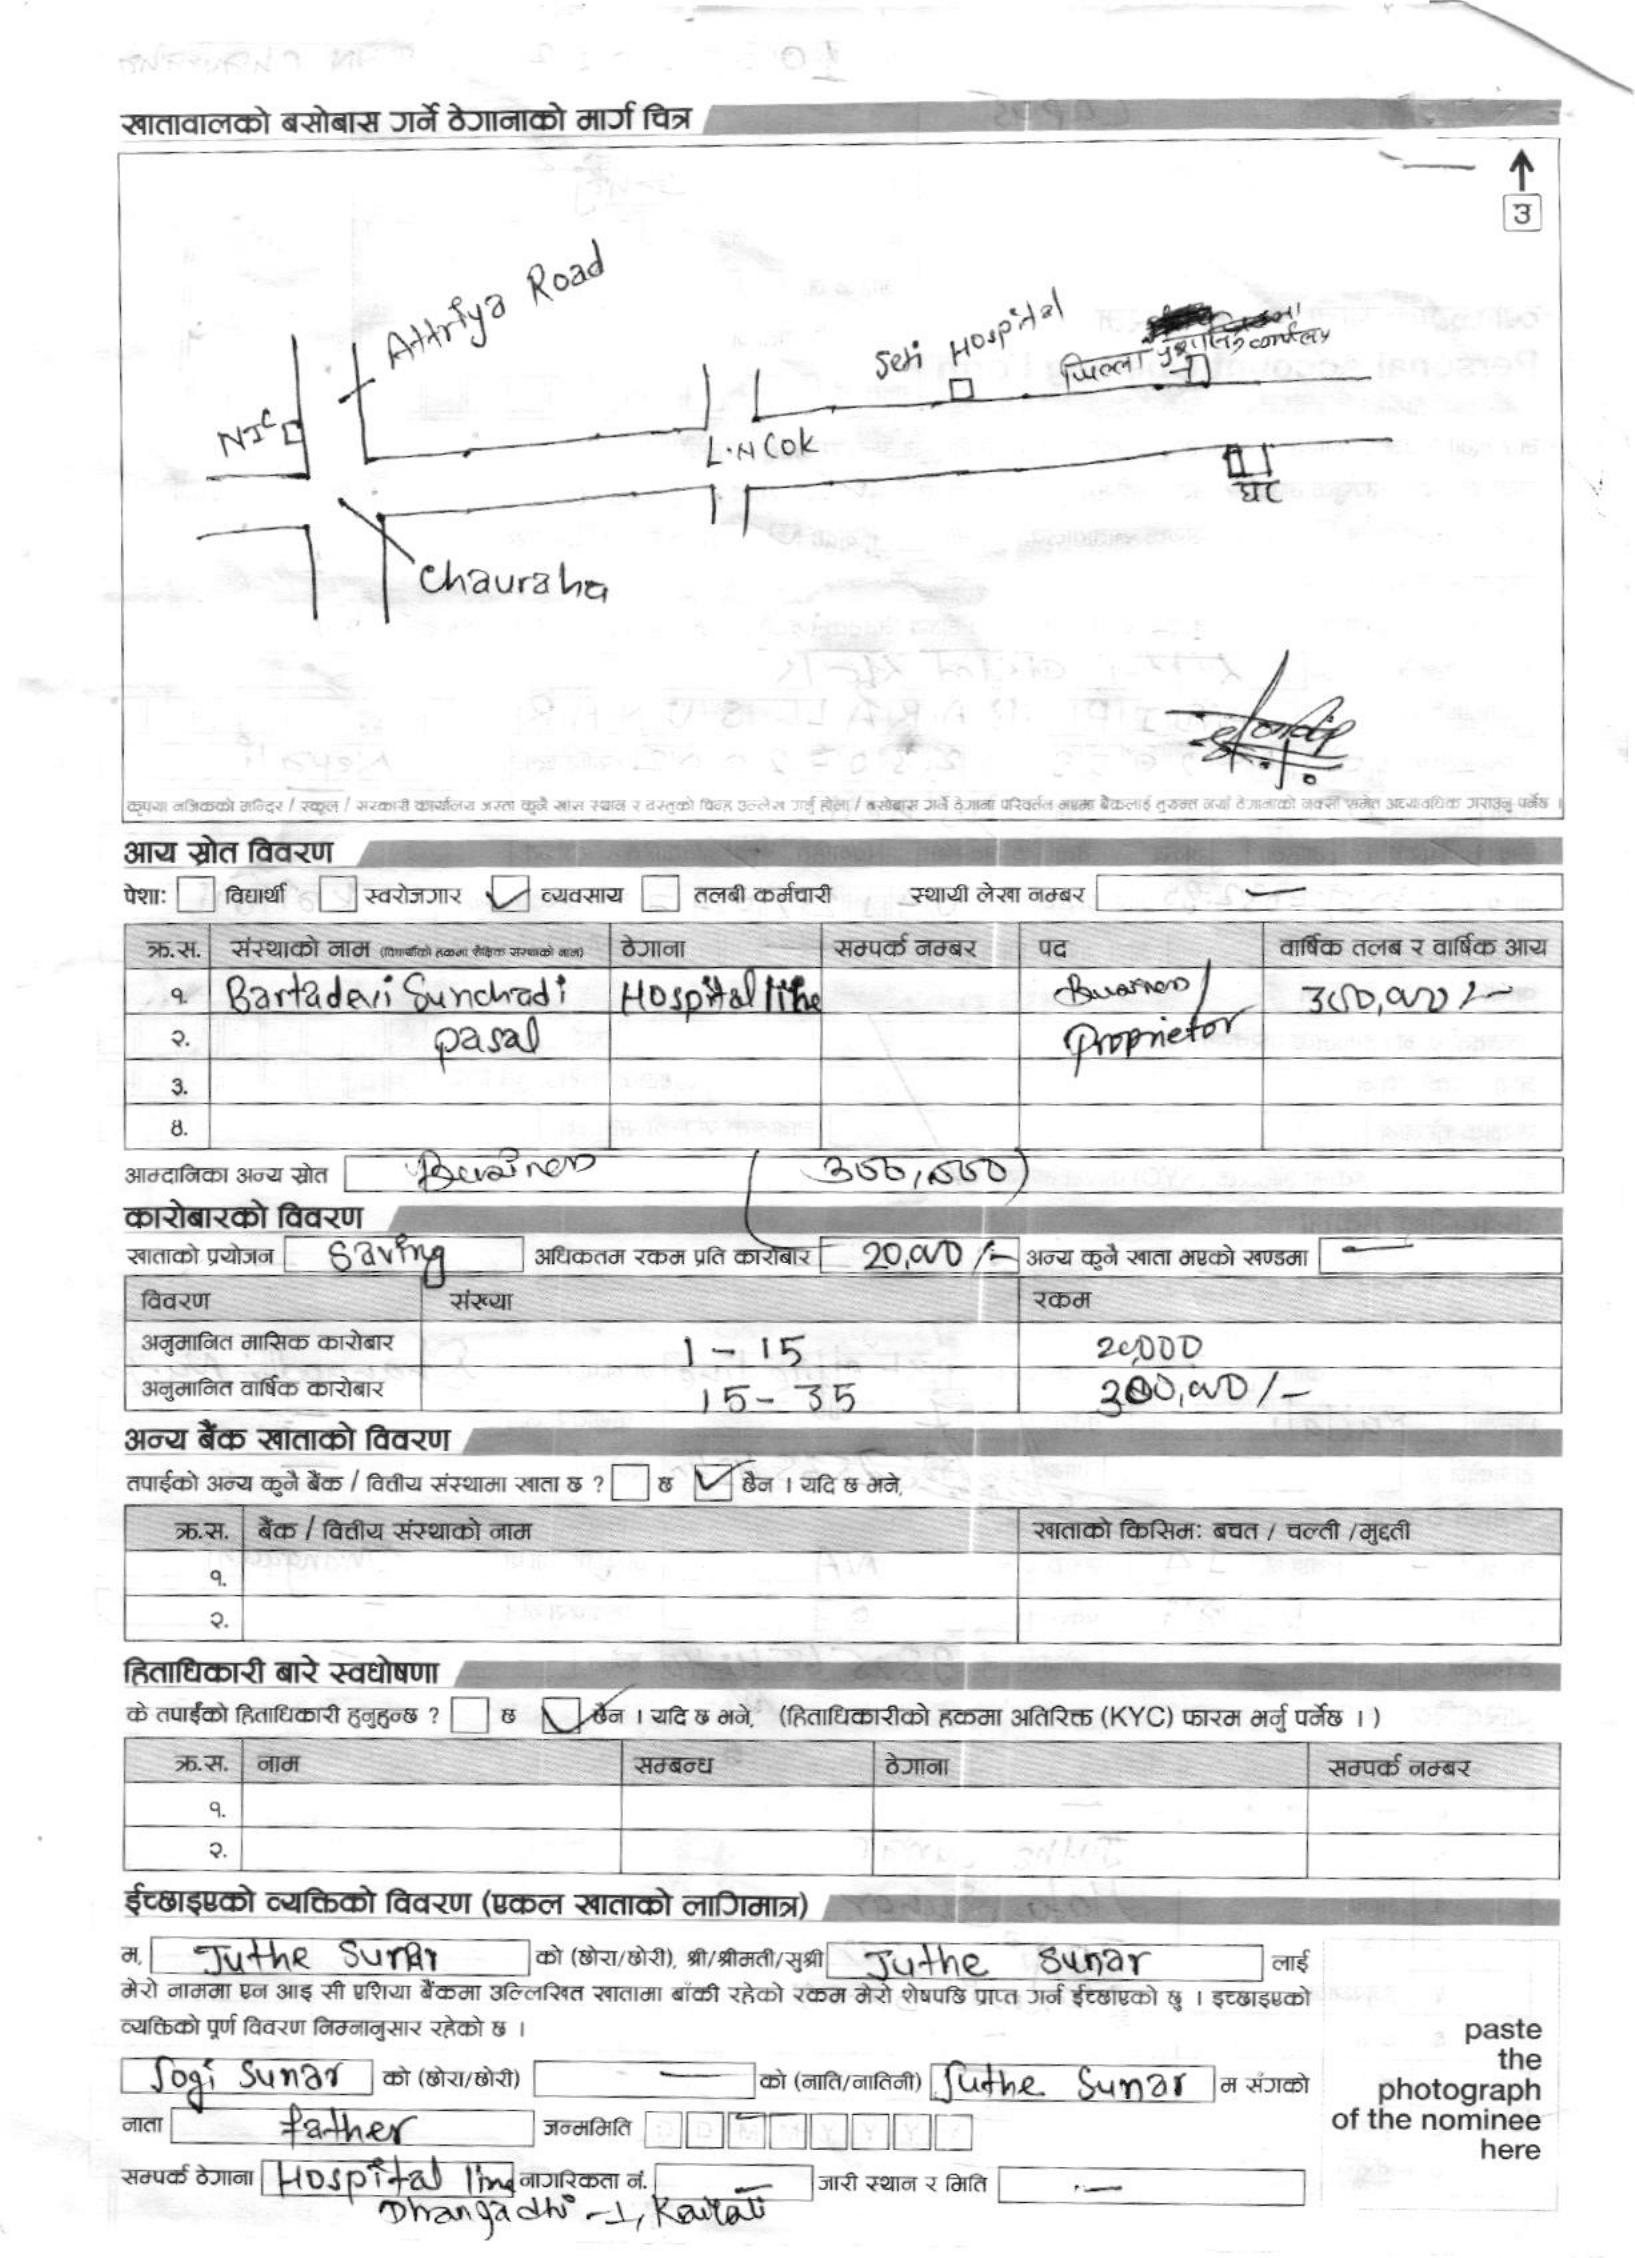 खातावालको बसोबास गर्ने ठेगानाको मार्ग चित्र
उ
Attriya Road
Seti Hospital
जिल्ला
NIC
L.N Cok
घर
Chauraha
कृपया नजिकको मन्दिर / स्कूल / सरकारी कार्यालय जस्ता कुनै खास स्थान र वस्तुको चिन्ह उल्लेख गर्नु होला / बसोबास गर्ने ठेगाना परिवर्तन भएमा बैंकलाई तुरुन्त नयाँ ठेगानाको नक्सा समेत अध्यावधिक गराउनु पर्नेछ ।
आय स्रोत विवरण
पेशा: विद्यार्थी स्वरोजगार व्यवसाय तलबी कर्मचारी स्थायी लेखा नम्बर —
क्र.स. संस्थाको नाम (विद्यार्थीको हकमा शैक्षिक संस्थाको नाम) ठेगाना सम्पर्क नम्बर पद वार्षिक तलब र वार्षिक आय
१. Bartadevi Sunchadi Hospital line Business/ 300,000/-
२. pasal Proprietor
३.
४.
आम्दानिका अन्य स्रोत Business
कारोबारको विवरण
खाताको प्रयोजन Saving अधिकतम रकम प्रति कारोबार 20,000/- अन्य कुनै खाता भएको खण्डमा —
विवरण संख्या रकम
अनुमानित मासिक कारोबार 1 - 15 20,000
अनुमानित वार्षिक कारोबार 15 - 35 300,000/-
अन्य बैंक खाताको विवरण
तपाईको अन्य कुनै बैंक / वित्तीय संस्थामा खाता छ ? छ छैन । यदि छ भने,
क्र.स. बैंक / वित्तीय संस्थाको नाम खाताको किसिम: बचत / चल्ती /मुद्दती
१.
२.
हिताधिकारी बारे स्वघोषणा
के तपाईंको हिताधिकारी हुनुहुन्छ ? छ छैन । यदि छ भने, (हिताधिकारीको हकमा अतिरिक्त (KYC) फारम भर्नु पर्नेछ । )
क्र.स. नाम सम्बन्ध ठेगाना सम्पर्क नम्बर
१.
२.
ईच्छाइएको व्यक्तिको विवरण (एकल खाताको लागिमात्र)
म, Juthe Sunar को (छोरा/छोरी), श्री/श्रीमती/सुश्री Juthe Sunar लाई
मेरो नाममा एन आइ सी एशिया बैंकमा उल्लिखित खातामा बाँकी रहेको रकम मेरो शेषपछि प्राप्त गर्न ईच्छाएको छु । इच्छाइएको
व्यक्तिको पूर्ण विवरण निम्नानुसार रहेको छ ।
Jogi Sunar को (छोरा/छोरी) — को (नाति/नातिनी) Juthe Sunar म संगको
नाता father जन्ममिति
सम्पर्क ठेगाना Hospital line नागरिकता नं. — जारी स्थान र मिति —
Dhangadhi -1, Kailali
paste
the
photograph
of the nominee
here